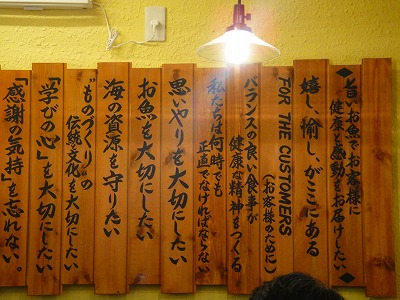 ◆旨いお魚でお客様に
健康と感動をお届けしたい◆
嬉し、愉し、がここにある
FOR THE CUSTOMERS
(お客様のために)
バランスの良い食事が
健康な精神をつくる
私たちは何時でも
正直でなければならない
思いやりを大切にしたい
お魚を大切にしたい
海の資源を守りたい
"ものづくり"の
伝統文化を大切にしたい
「学びの心」を大切にしたい
「感謝の気持」を忘れない。